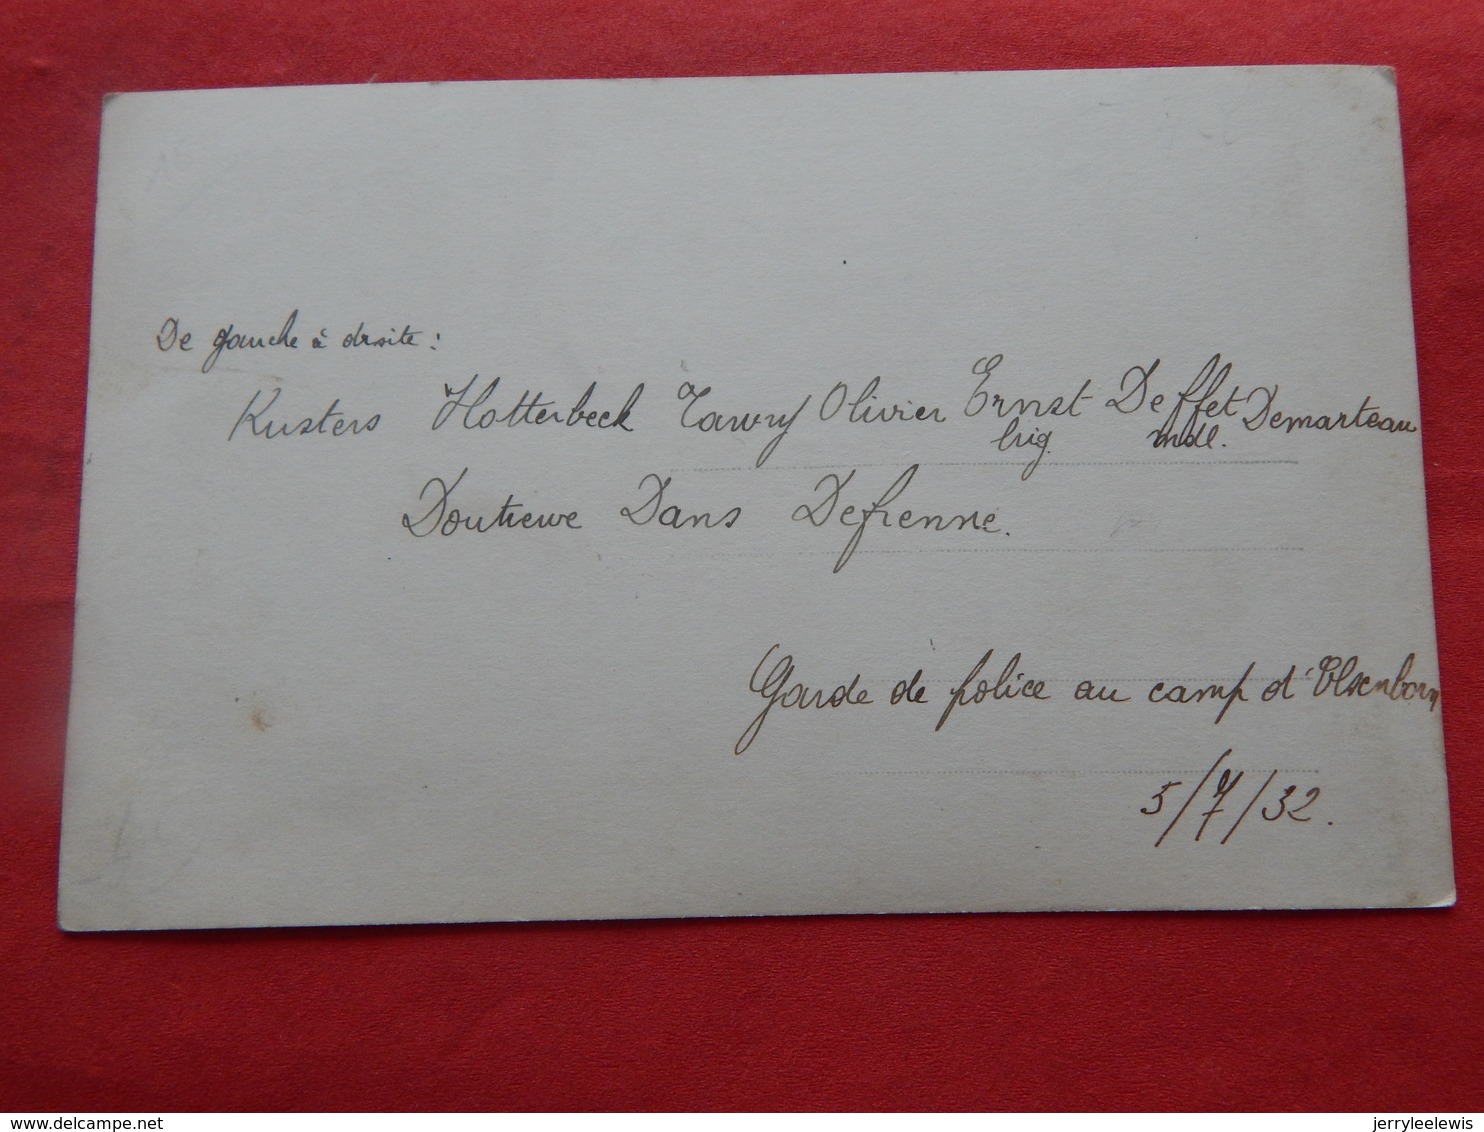 De gauche à droite :
Kusters Hotterbeck Tawry Olivier Ernst Deffet Demarteau
brig. mdl.
Doutrewe Dans Defrenne.
Garde de police au camp d'Elsenborn
5/7/32.
www.delcampe.net
jerryleelewis